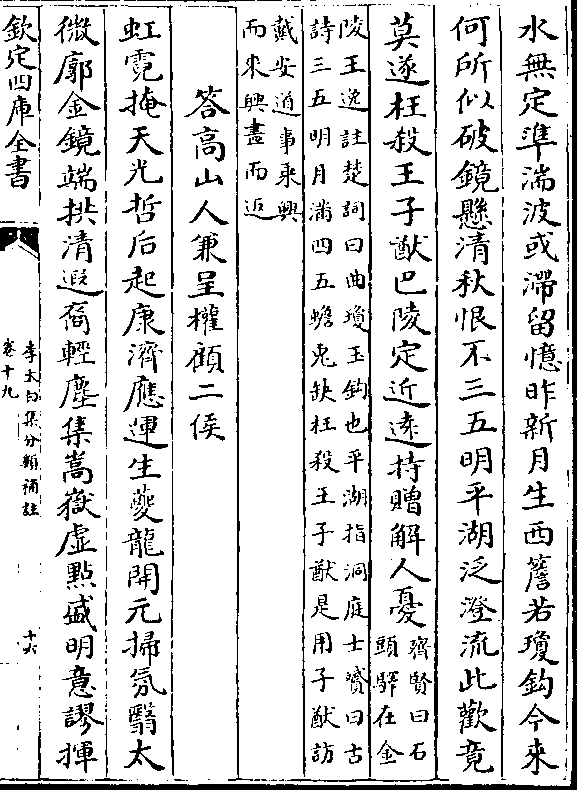 水無定準湍波或滯留憶昨新月生西簷若瓊鈎今来
何所似破鏡懸清秋恨不三五明平湖泛澄流此歡竟
莫遂枉殺王子猷巴陵定近遠持贈解人憂
齊賢曰石
頭驛在金
陵王逸註楚詞曰曲瓊玉鈎也平湖指洞庭士贇曰古
詩三五明月滿四五蟾兎缺枉殺王子猷是用子猷訪
戴安道事乘興
而来興盡而返
答高山人兼呈權顧二侯
虹霓掩天光哲后起康濟應運生夔龍開元掃氛翳太
微廓金鏡端拱清遐裔輕塵集嵩嶽虛點盛明意謬揮
欽定四庫全書
李太白集分類補註
卷十九
十六